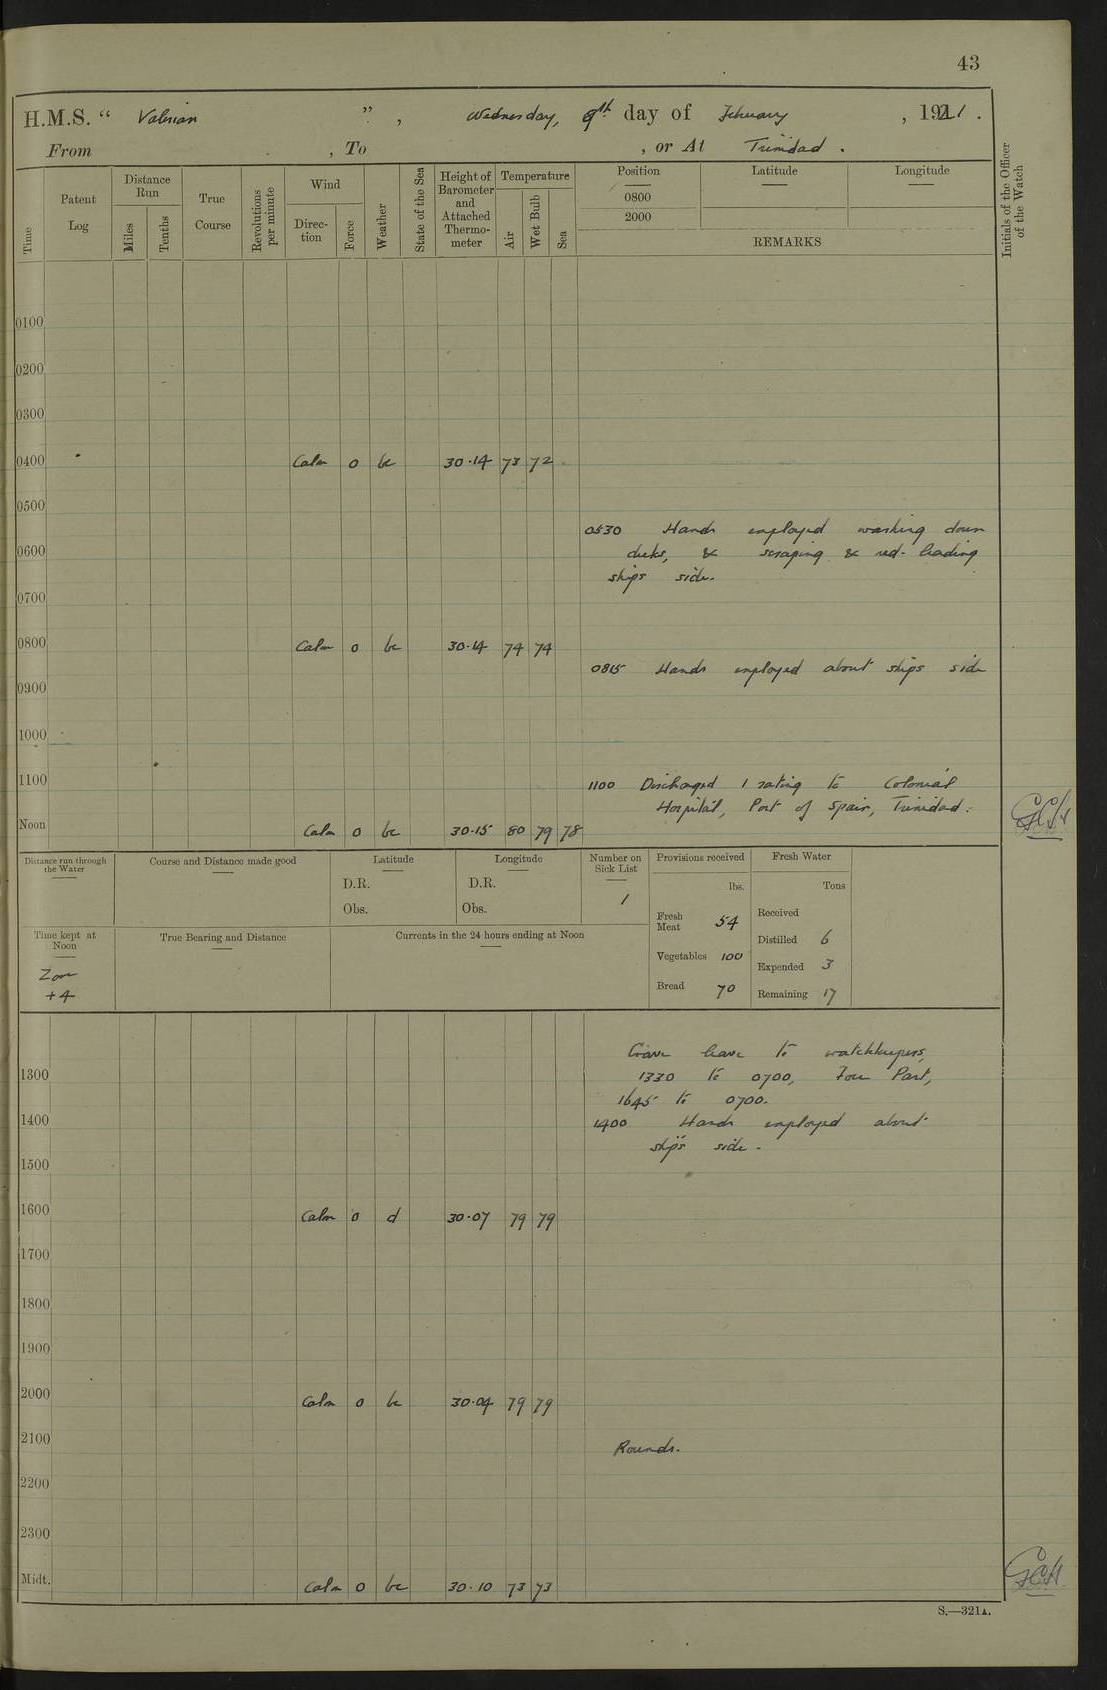 43
H.M.S. “ Valerian ” , Wednesday, 9th day of February , 1921 .
From , To , or At Trinidad .
Time
Patent Log
Distance Run
Miles
Tenths
True Course
Revolutions per minute
Wind
Direc-tion
Force
Weather
State of the Sea
Height of Barometer and Attached Thermo-meter
Temperature
Air
Wet Bulb
Sea
Position
0800
2000
Latitude
Longitude
REMARKS
Initials of the Officer of the Watch
0100
0200
0300
0400 Calm 0 bc 30·14 73 72
0500
0530 Hands employed washing down
0600 decks, & scraping & red-leading
ships side.
0700
0800 Calm 0 bc 30·14 74 74
0815 Hands employed about ships side
0900
1000
1100 1100 Discharged 1 rating to Colonial
Hospital, Port of Spain, Trinidad.
Noon Calm 0 bc 30·15 80 79 78 GCH
Distance run through the Water
Course and Distance made good
Latitude
D.R.
Obs.
Longitude
D.R.
Obs.
Number on Sick List
1
Provisions received
lbs.
Fresh Meat 54
Vegetables 100
Bread 70
Fresh Water
Tons
Received
Distilled 6
Expended 3
Remaining 17
Time kept at Noon
Zone
+4
True Bearing and Distance
Currents in the 24 hours ending at Noon
Gave leave to watchkeepers,
1300 1330 to 0700, Four Part,
1645 to 0700.
1400 1400 Hands employed about
ship's side.
1500
1600 Calm 0 d 30·07 79 79
1700
1800
1900
2000 Calm 0 bc 30·04 79 79
2100 Rounds.
2200
2300
Midt. Calm 0 bc 30·10 73 73 GCH
S.—321A.